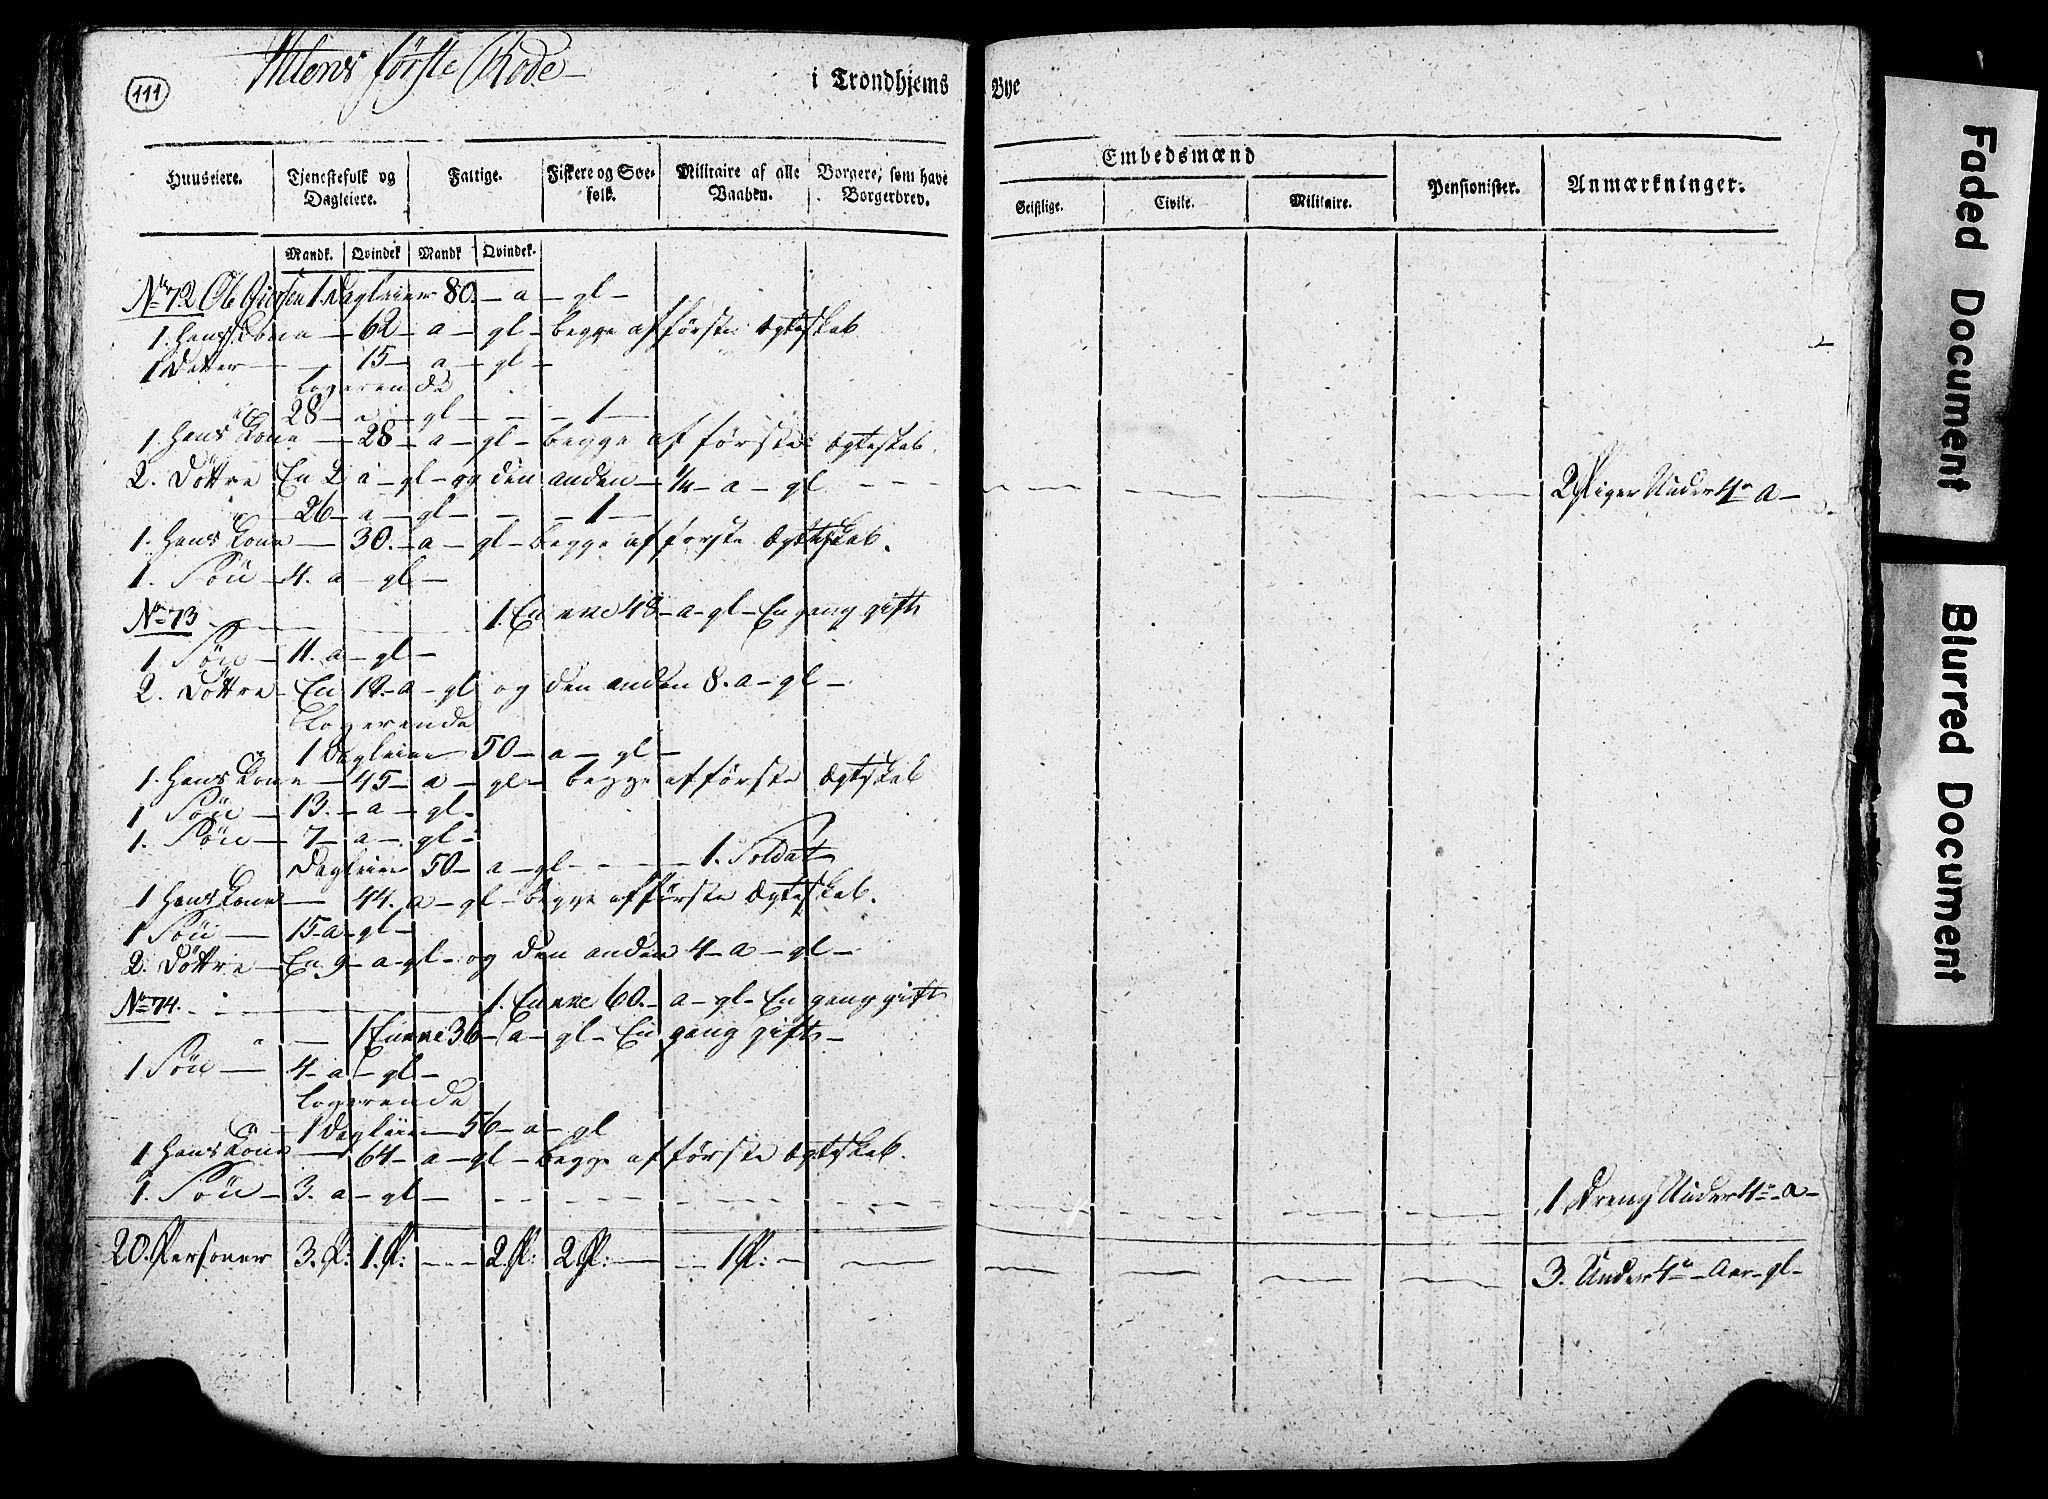 111
Ihlens første Rode
i Trondhjems
Bye
Huuseiere.
Tjenestefolk og Dagleiere.
Fattige.
Fiskere og Søefolk.
Militaire af alle Vaaben.
Borgere, som have Borgerbrev.
Embedsmænd
Geistlige.
Civile.
Militaire.
Pensionister.
Anmærkninger.
Mandk. Qvindek Mandk Qvindek.
No 72 Ole 1 Dagleier 80 - a - gl -
1. Hans Kone - 62 - a - gl - begge af første Ægteskab
1 Datter - 15 - a - gl -
Logerende
28 - a - gl - - - 1 -
1. Hans Kone - 28 - a - gl - begge af første Ægteskab.
2. Döttre En 2 a - gl - og den anden - 1/4 - a - gl - - - 2 Piger Under 4re a -
26 - a - gl - - - 1 -
1. Hans Kone - 30. - a - gl - begge af første Ægteskab.
1. Søn - 4. a - gl -
No 73 - - - 1. Enke 48 - a - gl - En gang gift
1 Søn - 11. a - gl -
2. Döttre - En 19 - a - gl og den anden 8. a - gl -
Logerende
1 Dagleier 50 - a - gl -
1. Hans Kone - 45 - a - gl - begge af første Ægteskab
1 Søn - 13. - a - gl -
1. Søn - 7 - a - gl -
Dagleier 50 - a - gl - - - 1. Soldat
1 Hans Kone - 44. a - gl - begge af første Ægteskab.
1 Søn - 15 - a - gl -
2. Döttre - En 9 - a - gl - og den anden 4 - a - gl -
No 74. - - - 1. Enke 60. - a - gl - En gang gift
1 Enke 36 - a - gl - En gang gift -
1 Søn - 4 - a - gl -
Logerende
1 Dagleier - 56 - a - gl
1 Hans Kone - 64 - a - gl - begge af første Ægteskab.
1. Søn - 3. a - gl - - - 1 Dreng Under 4re - a -
20. Personer 3. P: 1. P: - - - 2 P: 2 P: - - 1 P: - - 3. Under 4re - Aar - gl -
Faded Document
Blurred Document